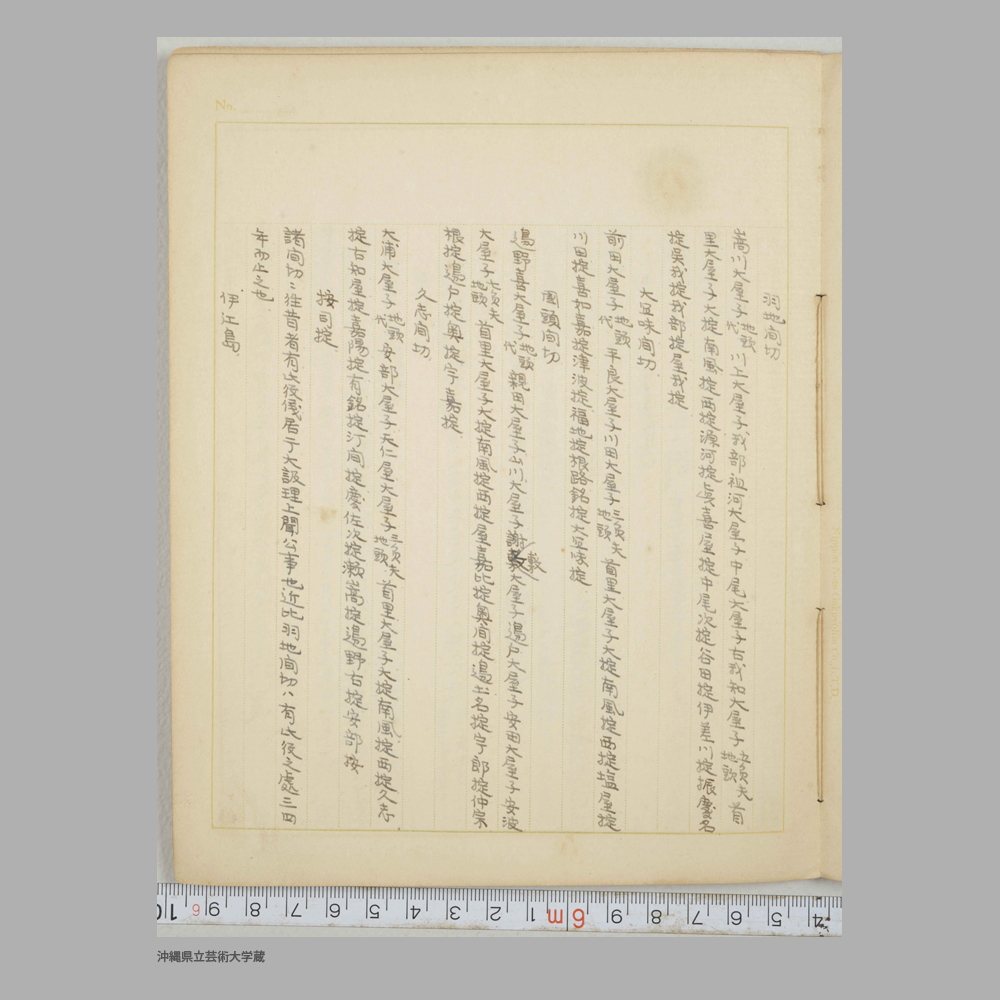 羽地間切
嵩川大屋子地頭代 川上大屋子我部祖河大屋子中尾大屋子古我知大屋子五員夫地頭 首
里大屋子大掟南風掟西掟源河掟真喜屋掟中尾次掟谷田掟伊差川掟振慶名
掟呉我掟我部掟屋我掟
大宜味間切
前田大屋子地頭代 平良大屋子川田大屋子三員夫地頭 首里大屋子大掟南風掟西掟塩屋掟
川田掟喜如嘉掟津波掟福地掟根路銘掟大宜味掟
国頭間切
邊野喜大屋子地頭代 親田大屋子山川大屋子謝敷大屋子邊戸大屋子安田大屋子安波
大屋子七員夫地頭 首里大屋子大掟南風掟西掟屋嘉比掟奥間掟邊土名掟宇郎掟仲宗
根掟邊戸掟奥掟宇嘉掟
久志間切
大浦大屋子地頭代 安部大屋子天仁屋大屋子三員夫地頭 首里大屋子大掟南風掟西掟久志
掟古知屋掟嘉陽掟有銘掟汀間掟慶佐次掟瀬嵩掟邊野古掟安部掟
按司掟
諸間切ニ往昔者有此役儀居于大設理上聞公事也近比羽地間切ハ有此役之處三四
年而止之也
伊江島
No.
沖縄県立芸術大学蔵